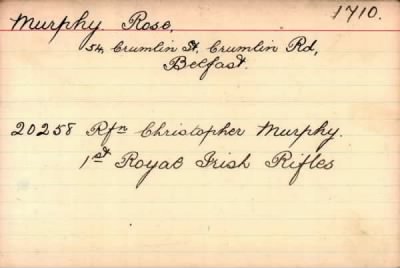 1710.
Murphy Rose,
54, Crumlin St, Crumlin Rd,
Belfast.
20258 Rfn Christopher Murphy.
1st Royal Irish Rifles